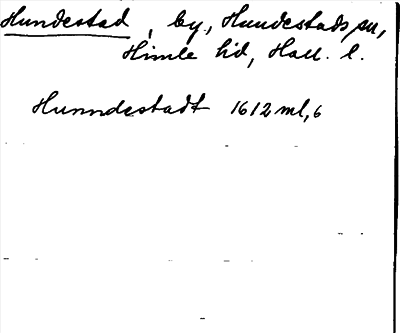 Hundestad, by., Hundestads sn,
Himle hd, Hall. l.
Hunndestadt 1612 ml, 6